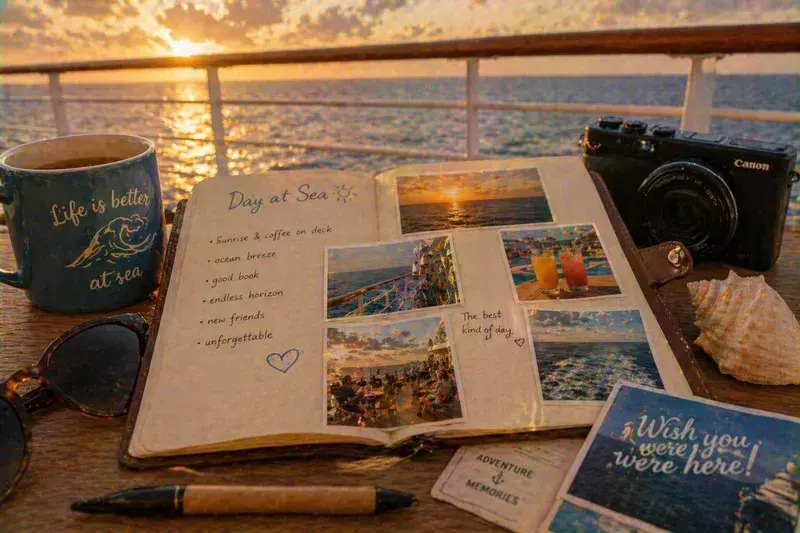 Life is better
at sea
Day at Sea
• Sunrise & coffee on deck
• ocean breeze
• good book
• endless horizon
• new friends
• unforgettable
The best
kind of day.
Canon
ADVENTURE
MEMORIES
Wish you
were
were here!